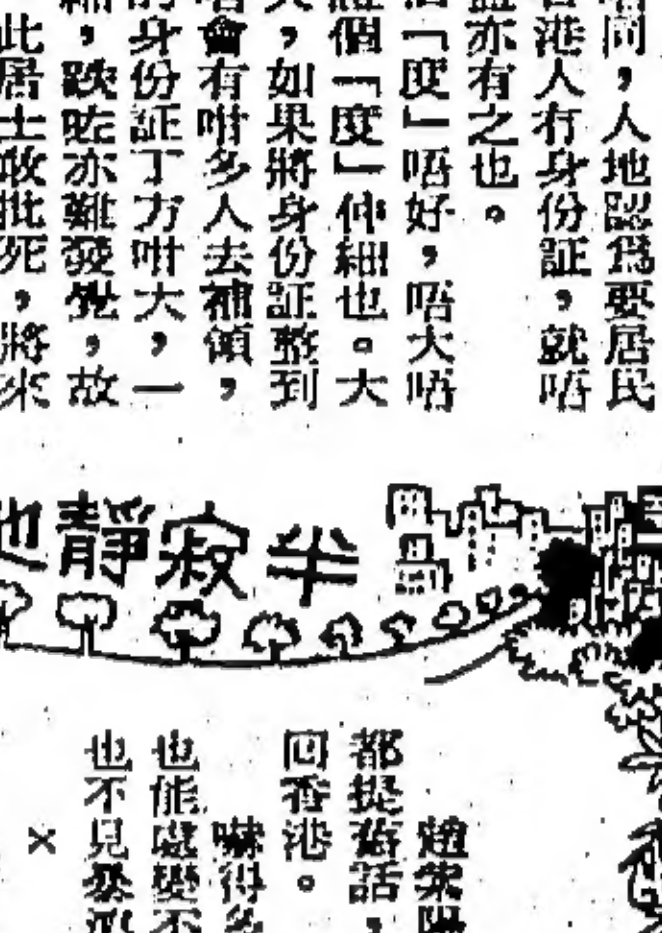 同，人地認爲要居民
香港人冇身份証，就唔
亦有之也。
「度」唔好，唔大唔
個「度」伸細也。大
，如果將身份証整到
會有咁多人去補領，
身份証丁方咁大，一
，跌咗亦難發覺，故
此居士敢批死，將來
半寂靜地
趙紫陽
都提舊話，
回香港。
嚇得多
也能處變不
也不見暴
×